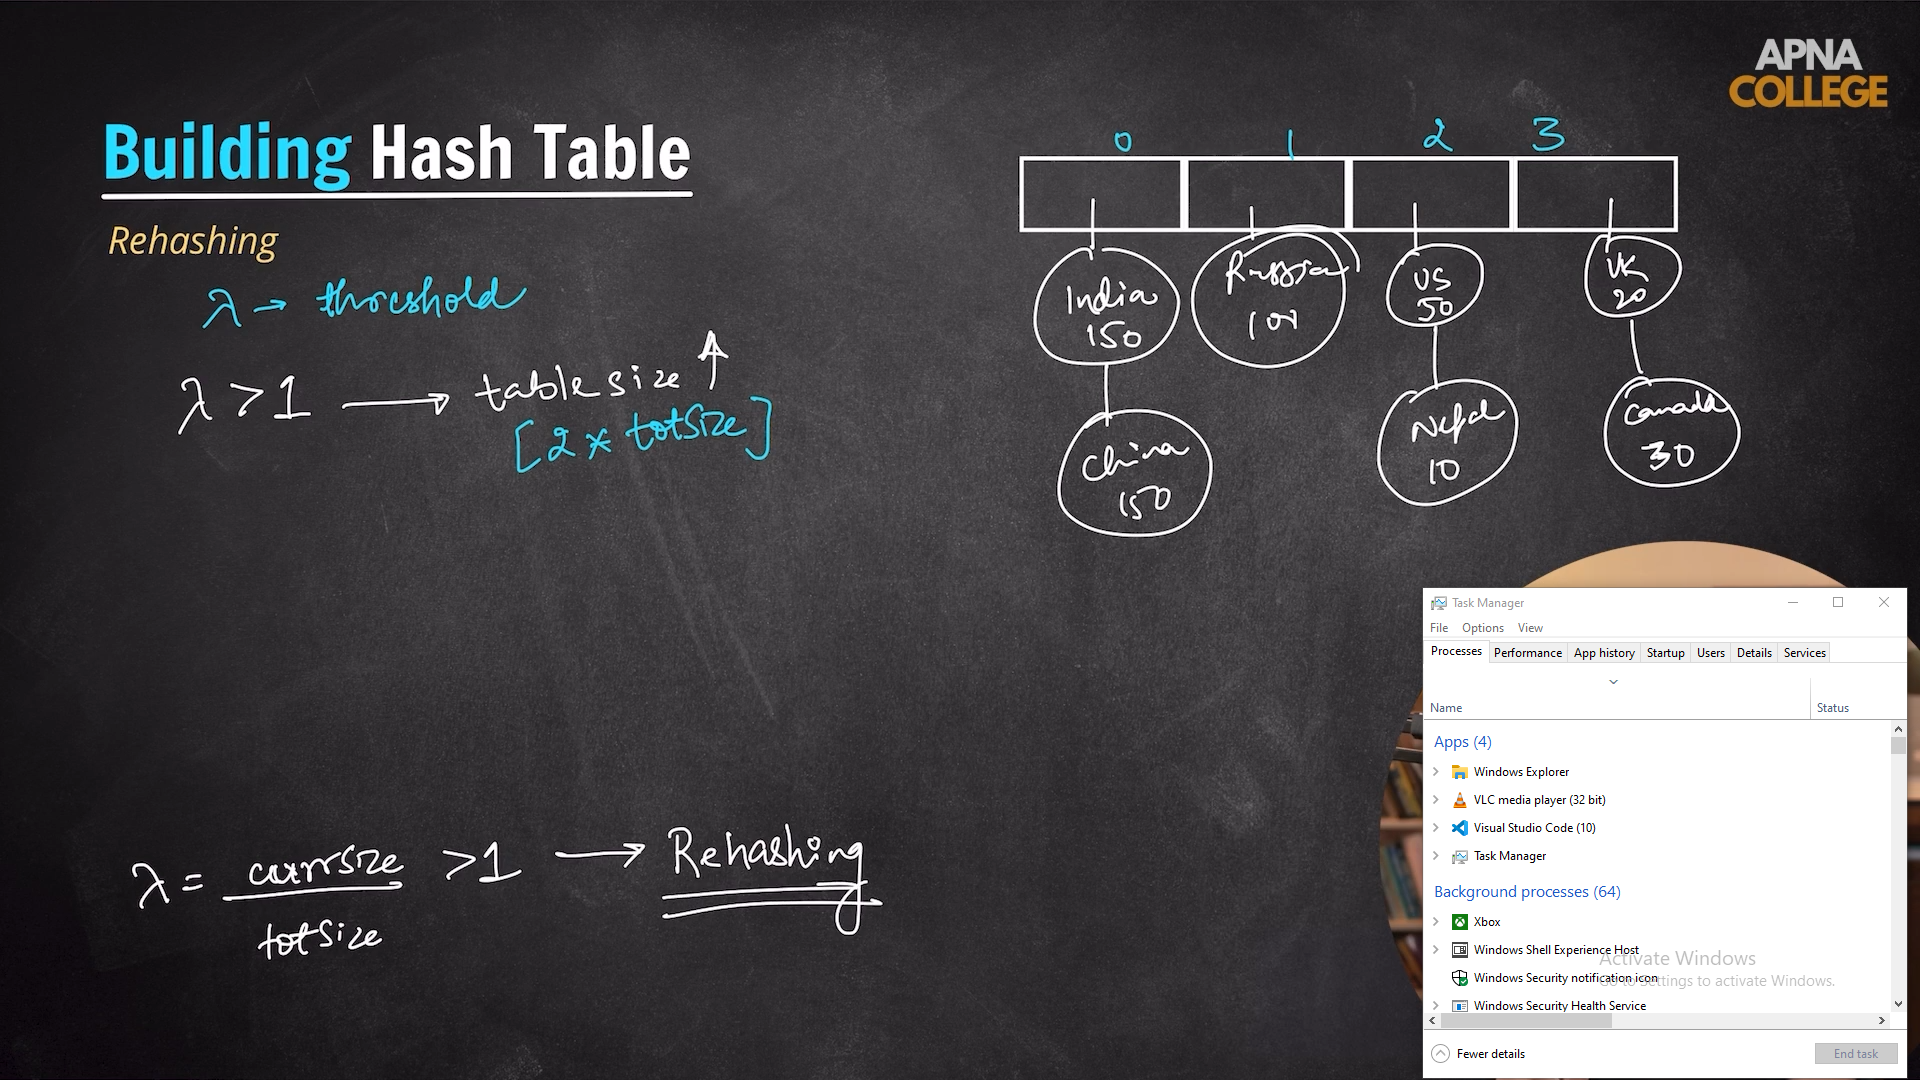 APNA
COLLEGE
Building Hash Table
Rehashing
λ → threshold
λ > 1 → table size ↑
[2 * totSize]
λ = currSize / totSize > 1 → Rehashing
0 1 2 3
India
150
Russia
US
50
UK
20
China
150
Nepal
10
Canada
30
Task Manager
File Options View
Processes Performance App history Startup Users Details Services
Name Status
Apps (4)
Windows Explorer
VLC media player (32 bit)
Visual Studio Code (10)
Task Manager
Background processes (64)
Xbox
Windows Shell Experience Host
Windows Security notification icon
Windows Security Health Service
Activate Windows
Go to Settings to activate Windows.
Fewer details
End task